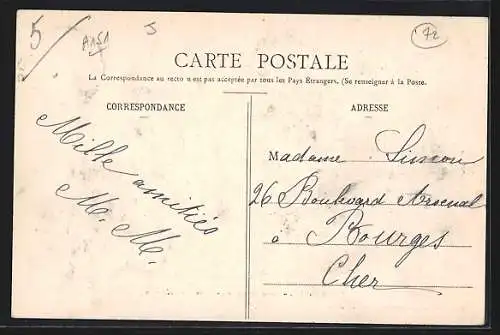 5
A151
5
72
CARTE POSTALE
La Correspondance au recto n'est pas acceptée par tous les Pays Étrangers. (Se renseigner à la Poste.
CORRESPONDANCE
Mille amitiés
M. M.
ADRESSE
Madame Simon
26 Boulevard Arsenal
à Bourges
Cher